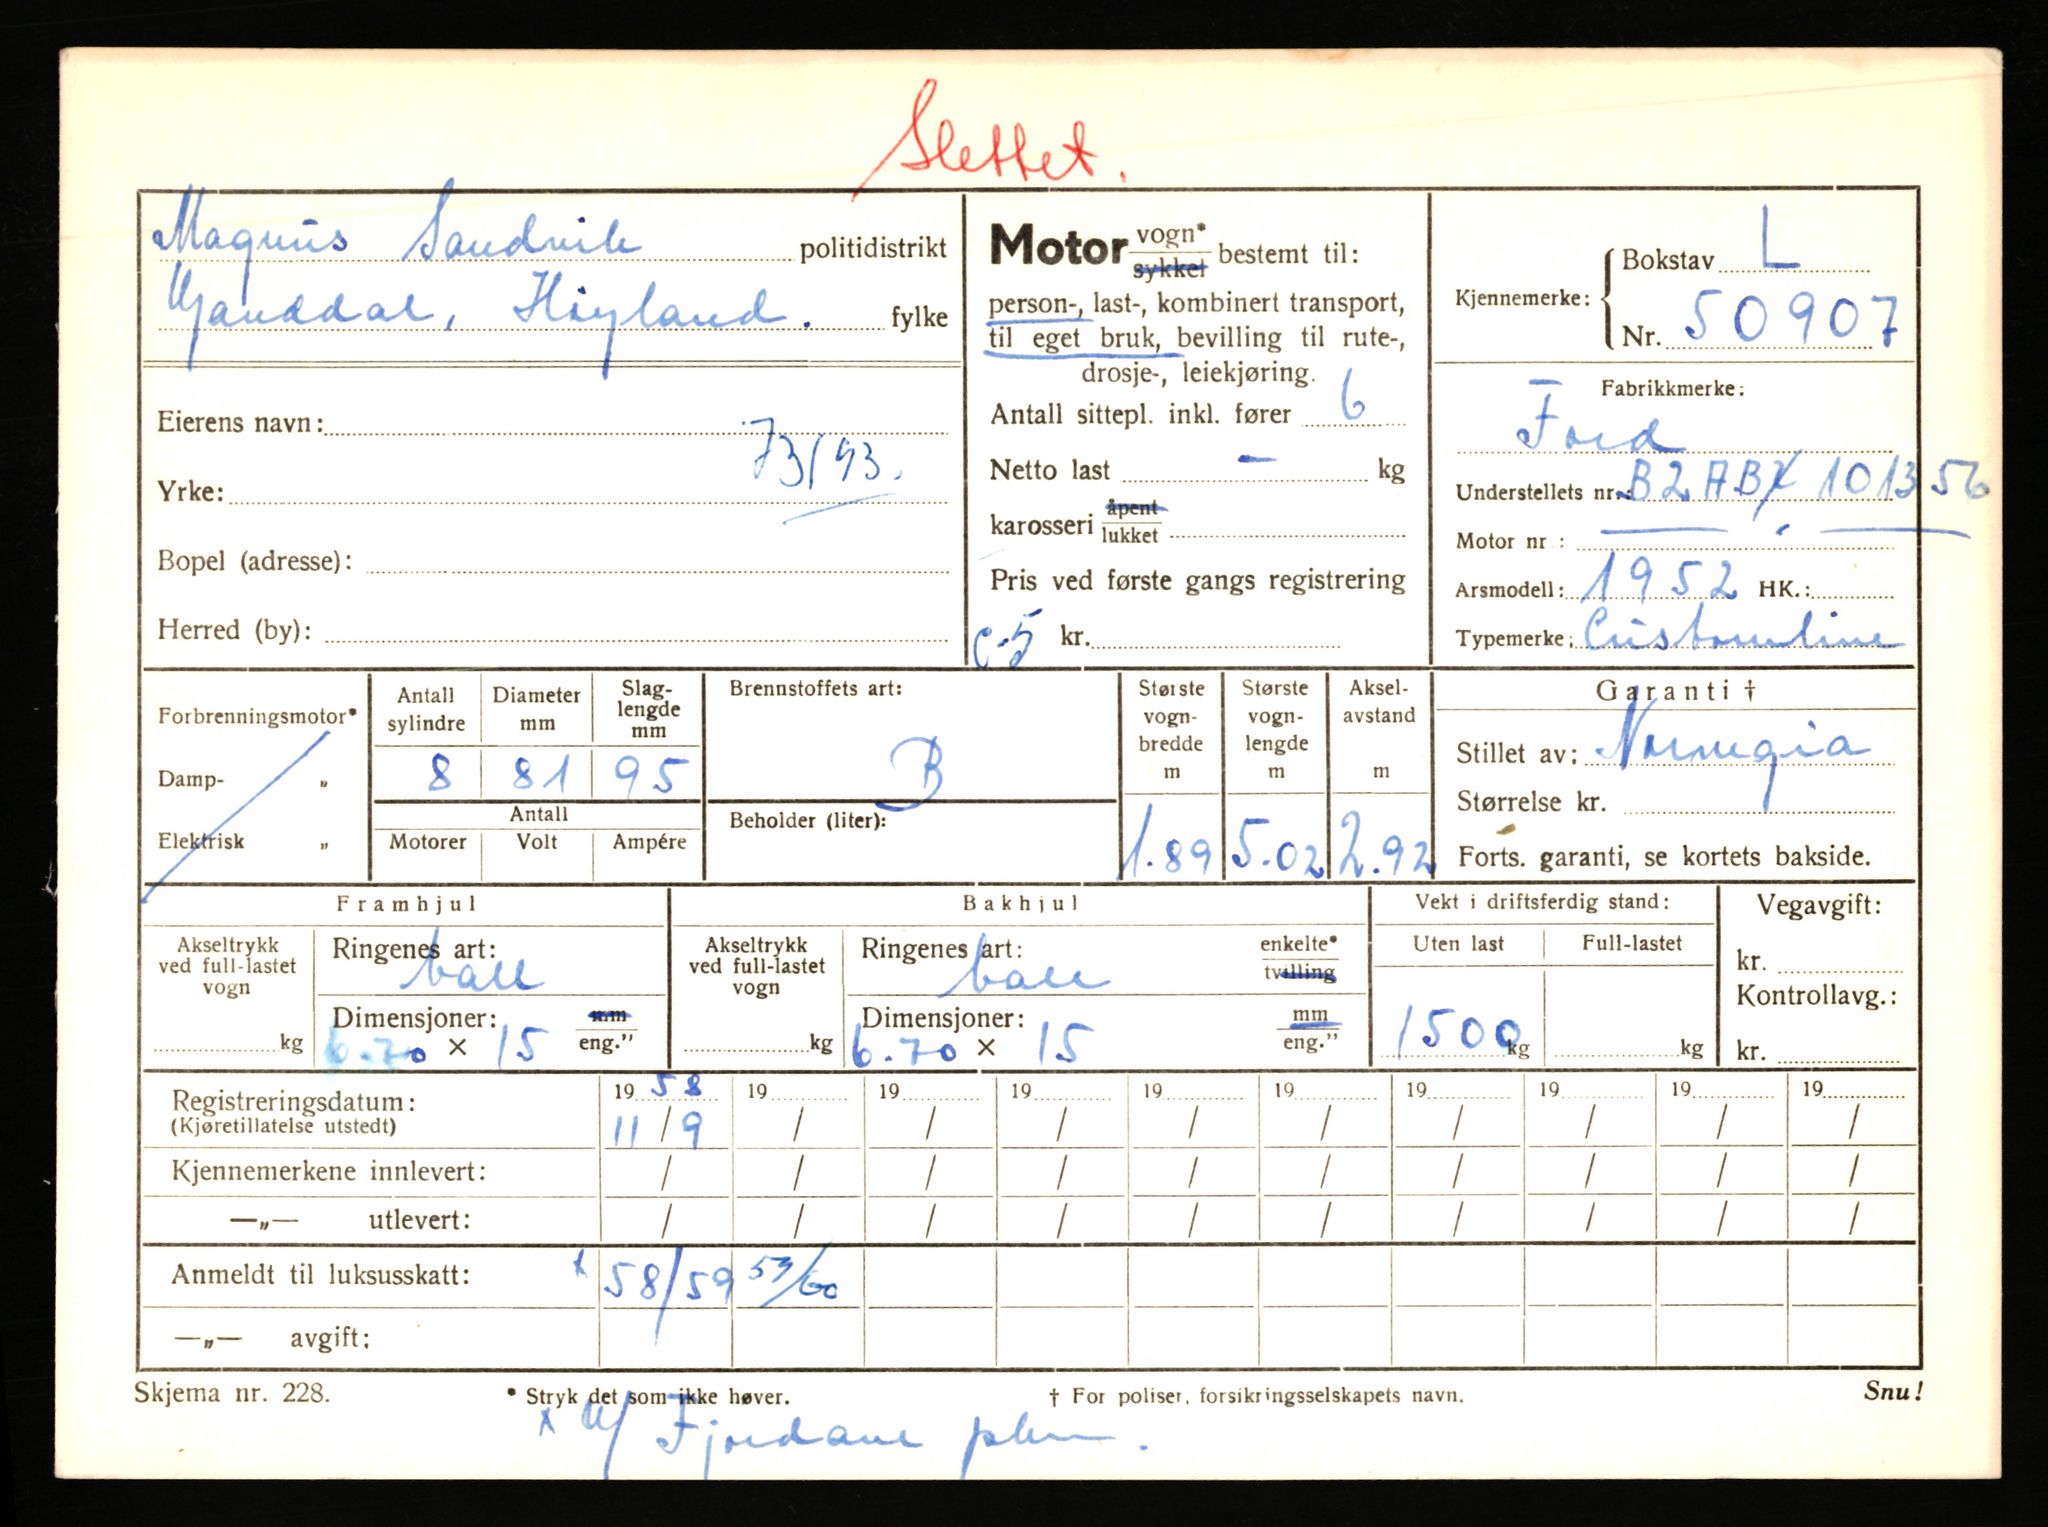 Slettet.
Magnus Sandvik politidistrikt
Ganddal, Høyland. fylke
Eierens navn:
73/93.
Yrke:
Bopel (adresse):
Herred (by):
Motor vogn* sykkel bestemt til:
person-, last-, kombinert transport,
til eget bruk, bevilling til rute-,
drosje-, leiekjøring.
Antall sittepl. inkl. fører 6
Netto last – kg
karosseri åpent lukket
Pris ved første gangs registrering
c-5 kr.
Kjennemerke: Bokstav L
Nr. 50907
Fabrikkmerke:
Ford
Understellets nr.: B2AB 101356
Motor nr :
Arsmodell: 1952 HK.:
Typemerke: Customline
Forbrenningsmotor*
Damp- „
Elektrisk „
Antall sylindre
8
Diameter mm
81
Slag-lengde mm
95
Antall
Motorer Volt Ampére
Brennstoffets art:
B
Beholder (liter):
Største vogn-bredde m
1.89
Største vogn-lengde m
5.02
Aksel-avstand m
2.92
Garanti †
Stillet av: Norvegia
Størrelse kr.
Forts. garanti, se kortets bakside.
Framhjul
Akseltrykk ved full-lastet vogn
kg
Ringenes art:
ball
Dimensjoner: mm
6.70 × 15 eng."
Bakhjul
Akseltrykk ved full-lastet vogn
kg
Ringenes art: enkelte*
ball tvilling
Dimensjoner: mm
6.70 × 15 eng."
Vekt i driftsferdig stand:
Uten last Full-lastet
1500 kg kg
Vegavgift:
kr.
Kontrollavg.:
kr.
Registreringsdatum: 19 58 19 19 19 19 19 19 19 19 19
(Kjøretillatelse utstedt) 11 / 9 / / / / / / / / /
Kjennemerkene innlevert: / / / / / / / / / /
—„— utlevert: / / / / / / / / / /
Anmeldt til luksusskatt: x 58/59 59/60
—„— avgift:
Skjema nr. 228. * Stryk det som ikke høver. † For poliser, forsikringsselskapets navn. Snu!
x Fjordane